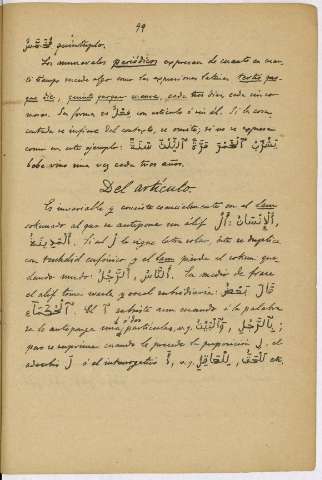 99
مُخَمَّس quintuplo.
Los numerales periódicos expresan de cuanto en cuan-
to tiempo sucede algo como las expresiones latinas tertio quo-
que die, quinto quoque mense, cada tres días cada cinco
meses. La forma es con artículo ó sin él. Si la cosa
contada se infiere del contexto, se omite; si no se expresa
como en este ejemplo: يَشْرَبُ الْخَمْرَ مَرَّةً الثِّلْثَ سَنَةً
bebe vino una vez cada tres años.
Del artículo.
Es invariable y consiste esencialmente en el lam
al que se antepone un álif اَلْ: اَلْإِنْسَانُ,
Si al لْ le sigue letra solar, éste se duplica
con teschdid eufónico y el lam pierde el que-
dando mudo: اَلنَّاسُ, اَلرَّجُلُ. En medio de frase
el alif tiene wasla y vocal subsidiaria: قَالَ
El ا subsiste aun cuando á la palabra
se le anteponga una ó dos partículas, v.g. بِٱلرَّجُلِ, وَٱلْبَيْتِ;
pero se suprime cuando le precede la preposición لِ, el
adverbio لَ ó el interrogativo أَ, v.g. لِلْعَاقِلِ, لَلْحَقُّ etc.